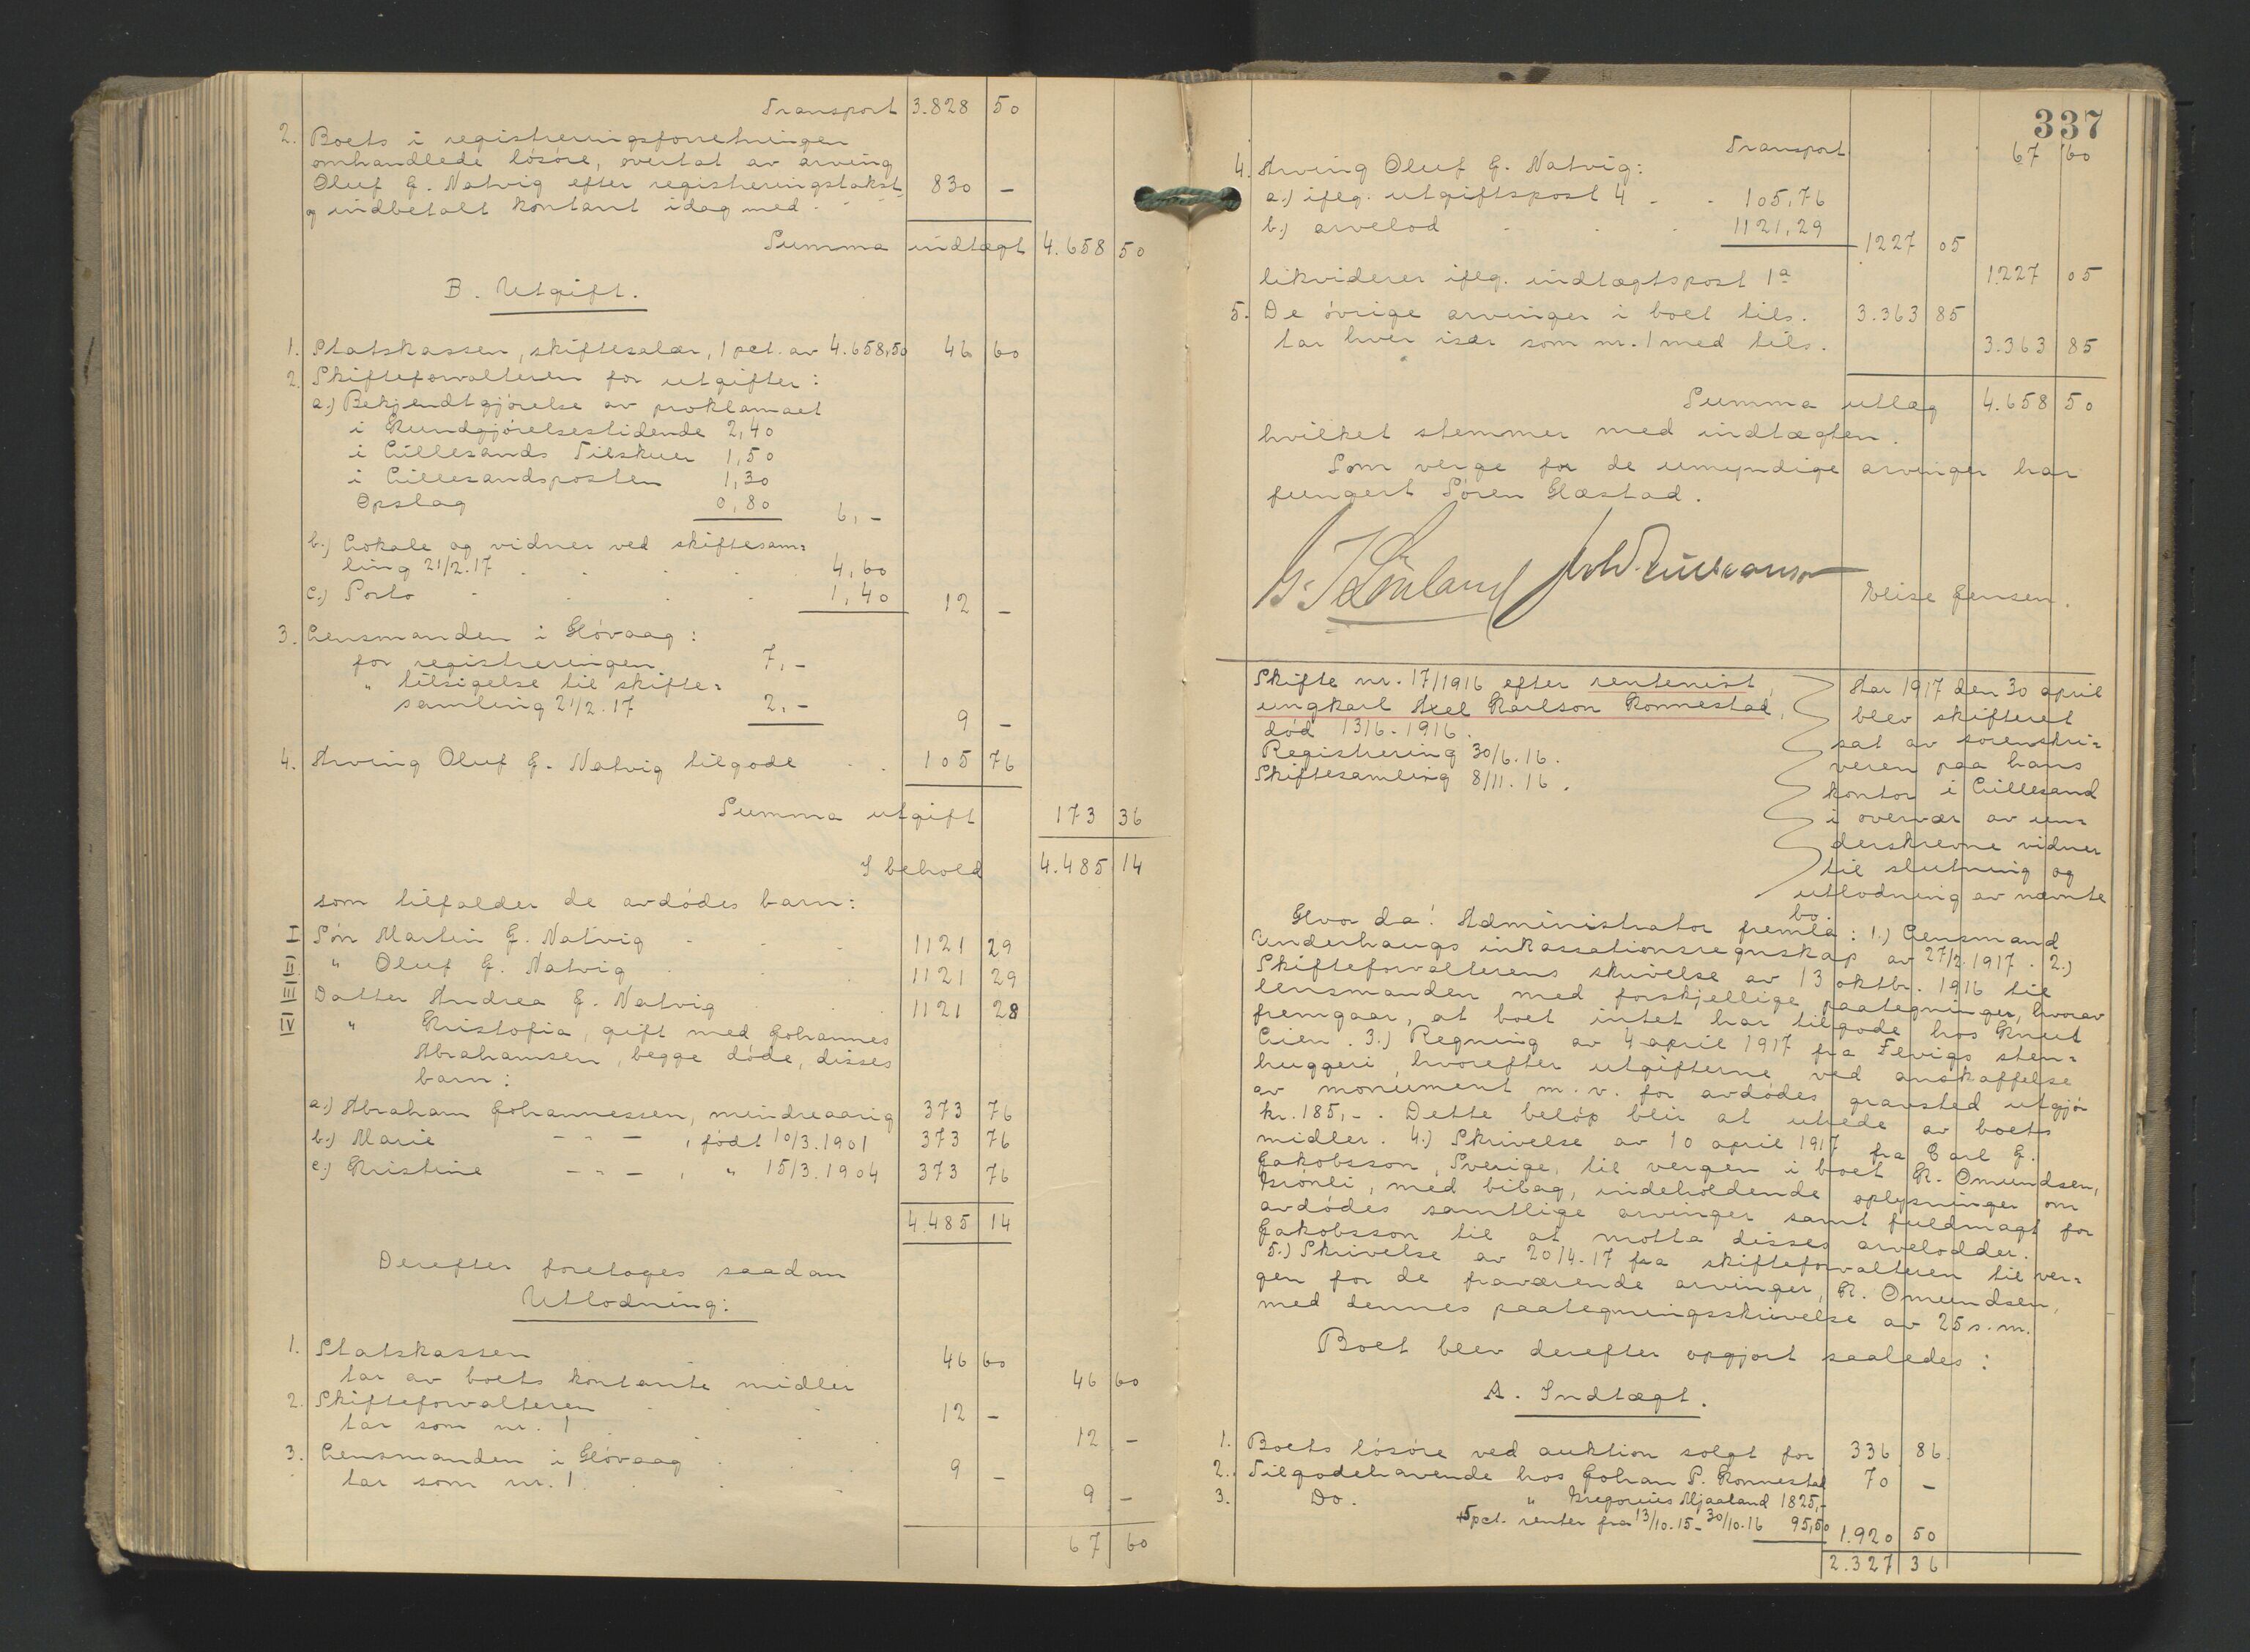 Transport 3.828 50
2. Boets i registreringsforretningen
omhandlede løsøre, overtat av arving
Oluf G. Natvig efter registreringstakst 830 –
og indbetalt kontant idag med
Summa indtægt 4.658 50
B. Utgift.
1. Statskassen, skiftesalær, 1 pct. av 4.658,50 46 60
2. Skifteforvalteren for utgifter:
a.) Bekjendtgjørelse av proklamaet
i Kundgjørelsestidende 2,40
i Lillesands Tilskuer 1,50
i Lillesandsposten 1,30
Opslag 0,80 6,–
b.) Lokale og vidner ved skiftesam=
ling 21/2.17 4,60
c.) Porto 1,40 12 –
3. Lensmanden i Høvaag:
for registreringen 7,–
" tilsigelse til skifte=
samling 21/2.17 2,– 9 –
4. Arving Oluf G. Natvig tilgode 105 76
Summa utgift 173 36
I behold 4.485 14
som tilfalder de avdødes barn:
I Søn Martin G. Natvig 1121 29
II " Oluf G. Natvig 1121 29
III Datter Andrea G. Natvig 1121 28
IV " Kristofia, gift med Johannes
Abrahamsen, begge døde, disses
barn:
a.) Abraham Johannessen, mindreaarig 373 76
b.) Marie – " – , født 10/3.1901 373 76
c.) Kristine – " – , " 15/3.1904 373 76
4.485 14
Derefter foretoges saadan
Utlodning:
1. Statskassen 46 60
tar av boets kontante midler 46 60
2. Skifteforvalteren 12 –
tar som nr. 1 12 –
3. Lensmanden i Høvaag 9 –
tar som nr. 1 9 –
67 60
337
Transport 67 60
4. Arving Oluf G. Natvig:
a.) ifølg. utgiftspost 4 105,76
b.) arvelod 1121,29 1227 05
likviderer ifølg. indtægtspost 1a 1227 05
5. De øvrige arvinger i boet tils. 3.363 85
tar hver især som nr. 1 med tils. 3.363 85
Summa utlæg 4.658 50
hvilket stemmer med indtægten.
Som verge for de umyndige arvinger har
fungert Søren Hæstad.
Elise Jensen.
Skifte nr. 17/1916 efter rentenist,
ungkarl Axel Karlson Konnestad,
død 13/6-1916.
Registrering 30/6.16.
Skiftesamling 8/11.16.
Aar 1917 den 30 april
blev skifteret
sat av sorenskri=
veren paa hans
kontor i Lillesand
i overvær av un=
derskrevne vidner
til slutning og
utlodning av nævnte
bo.
Hvor da! Administrator fremla: 1.) Lensmand
Underhaugs inkassationsregnskap av 27/2.1917. 2.)
Skifteforvalterens skrivelse av 13 oktbr. 1916 til
lensmanden med forskjellige paategninger, hvorav
fremgaar, at boet intet har tilgode hos Knut
Lien. 3.) Regning av 4 april 1917 fra Fevigs sten=
huggeri, hvorefter utgifterne ved anskaffelse
av monument m.v. for avdødes gravsted utgjør
kr. 185,–. Dette beløp blir at utrede av boets
midler. 4.) Skrivelse av 10 april 1917 fra Carl J.
Jakobsson, Sverige, til vergen i boet K. Omundsen,
Grønli, med bilag, indeholdende oplysninger om
avdødes samtlige arvinger samt fuldmagt for
Jakobsson til at motta disses arvelodder.
5.) Skrivelse av 20/4.17 fra skifteforvalteren til ver=
gen for de fraværende arvinger, K. Omundsen,
med dennes paategningsskrivelse av 25 s.m.
Boet blev derefter opgjort saaledes:
A. Indtægt.
1. Boets løsøre ved auktion solgt for 336 86
2. Tilgodehavende hos Johan P. Konnestad 70 –
3. Do. " Gregorius Mjaaland 1825,–
+5 pct. renter fra 13/10.15–30/10.16 95,50 1.920 50
2.327 36